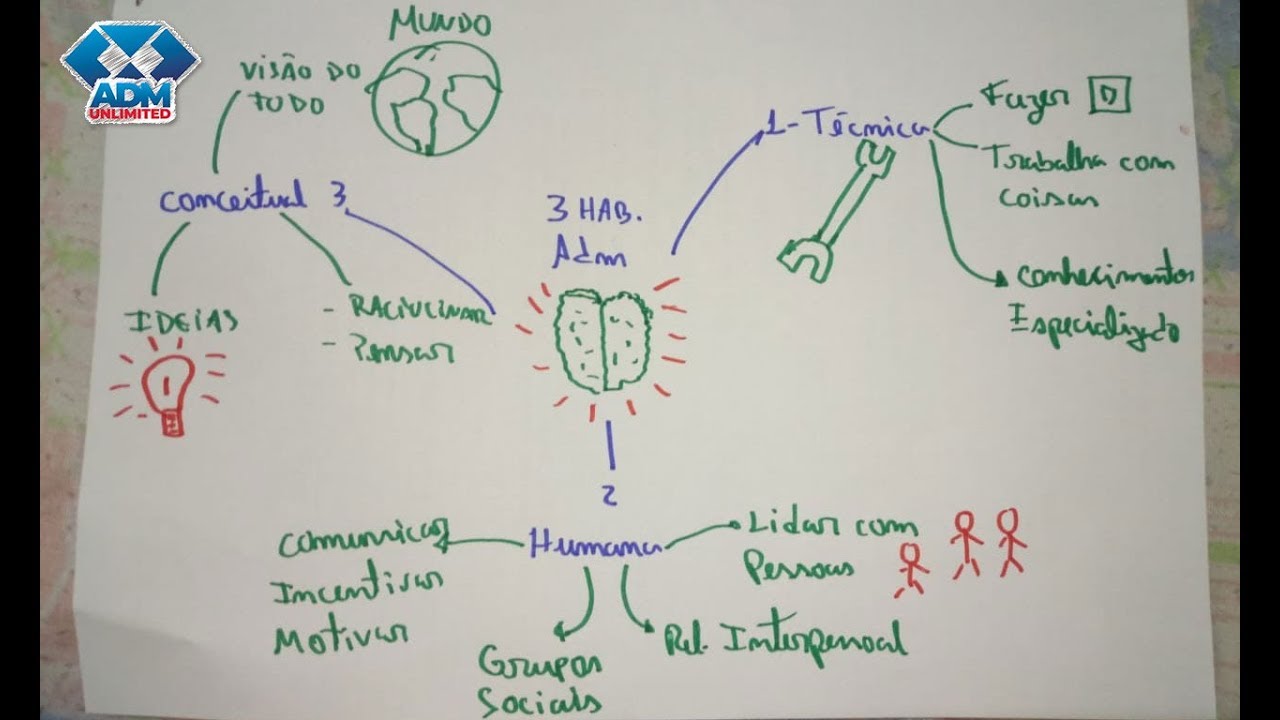 ADM
UNLIMITED
MUNDO
VISÃO DO
TUDO
conceitual 3
IDEIAS
- RACIUCINAR
- Pensar
3 HAB.
Adm
1-Técnica
Fazer
Trabalha com
coisas
conhecimentos
Especializado
2
Humana
comunicar
Incentivar
Motivar
Grupos
Sociais
Rel. Interpessoal
Lidar com
Pessoas